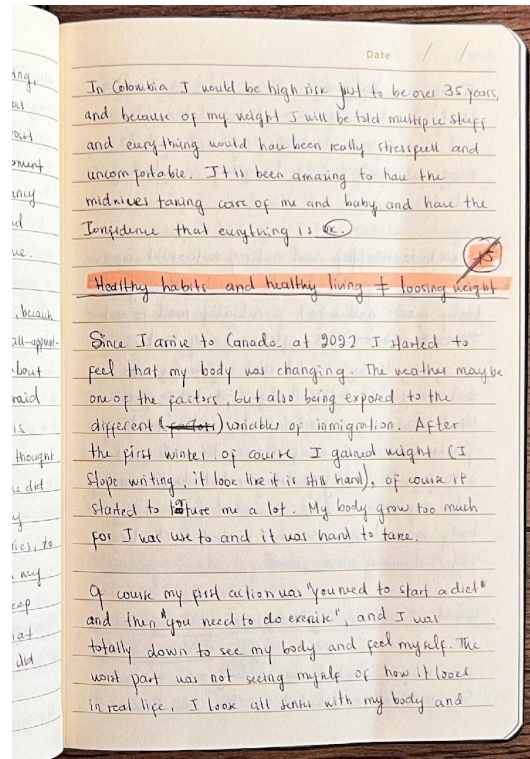 Date / /
In Colombia I would be high risk just to be over 35 years,
and because of my weight I will be told multiple stuff
and everything would have been really stressfull and
uncomfortable. It is been amazing to have the
midwives taking care of me and baby, and have the
Confidence that everything is ok.
Healthy habits and healthy living ≠ loosing weight
Since I arrive to Canada at 2022 I started to
feel that my body was changing. The weather maybe
one of the factors, but also being exposed to the
different (factors) variables of inmigration. After
the first winter, of course I gained weight (I
stope writing, it look like it is still hard), of course it
started to me a lot. My body grow too much
for I was use to and it was hard to take.
Of course my first action was "you need to start a diet"
and then "you need to do exercise", and I was
totally down to see my body and feel myself. The
worst part was not seeing myself of how it looks
in real life. I loose all with my body and
ing,
out
oment
ancy
d
ue.
, because
all-appoint-
bout
raid
is
thought
did
y
ries, to
my
eep
at
did